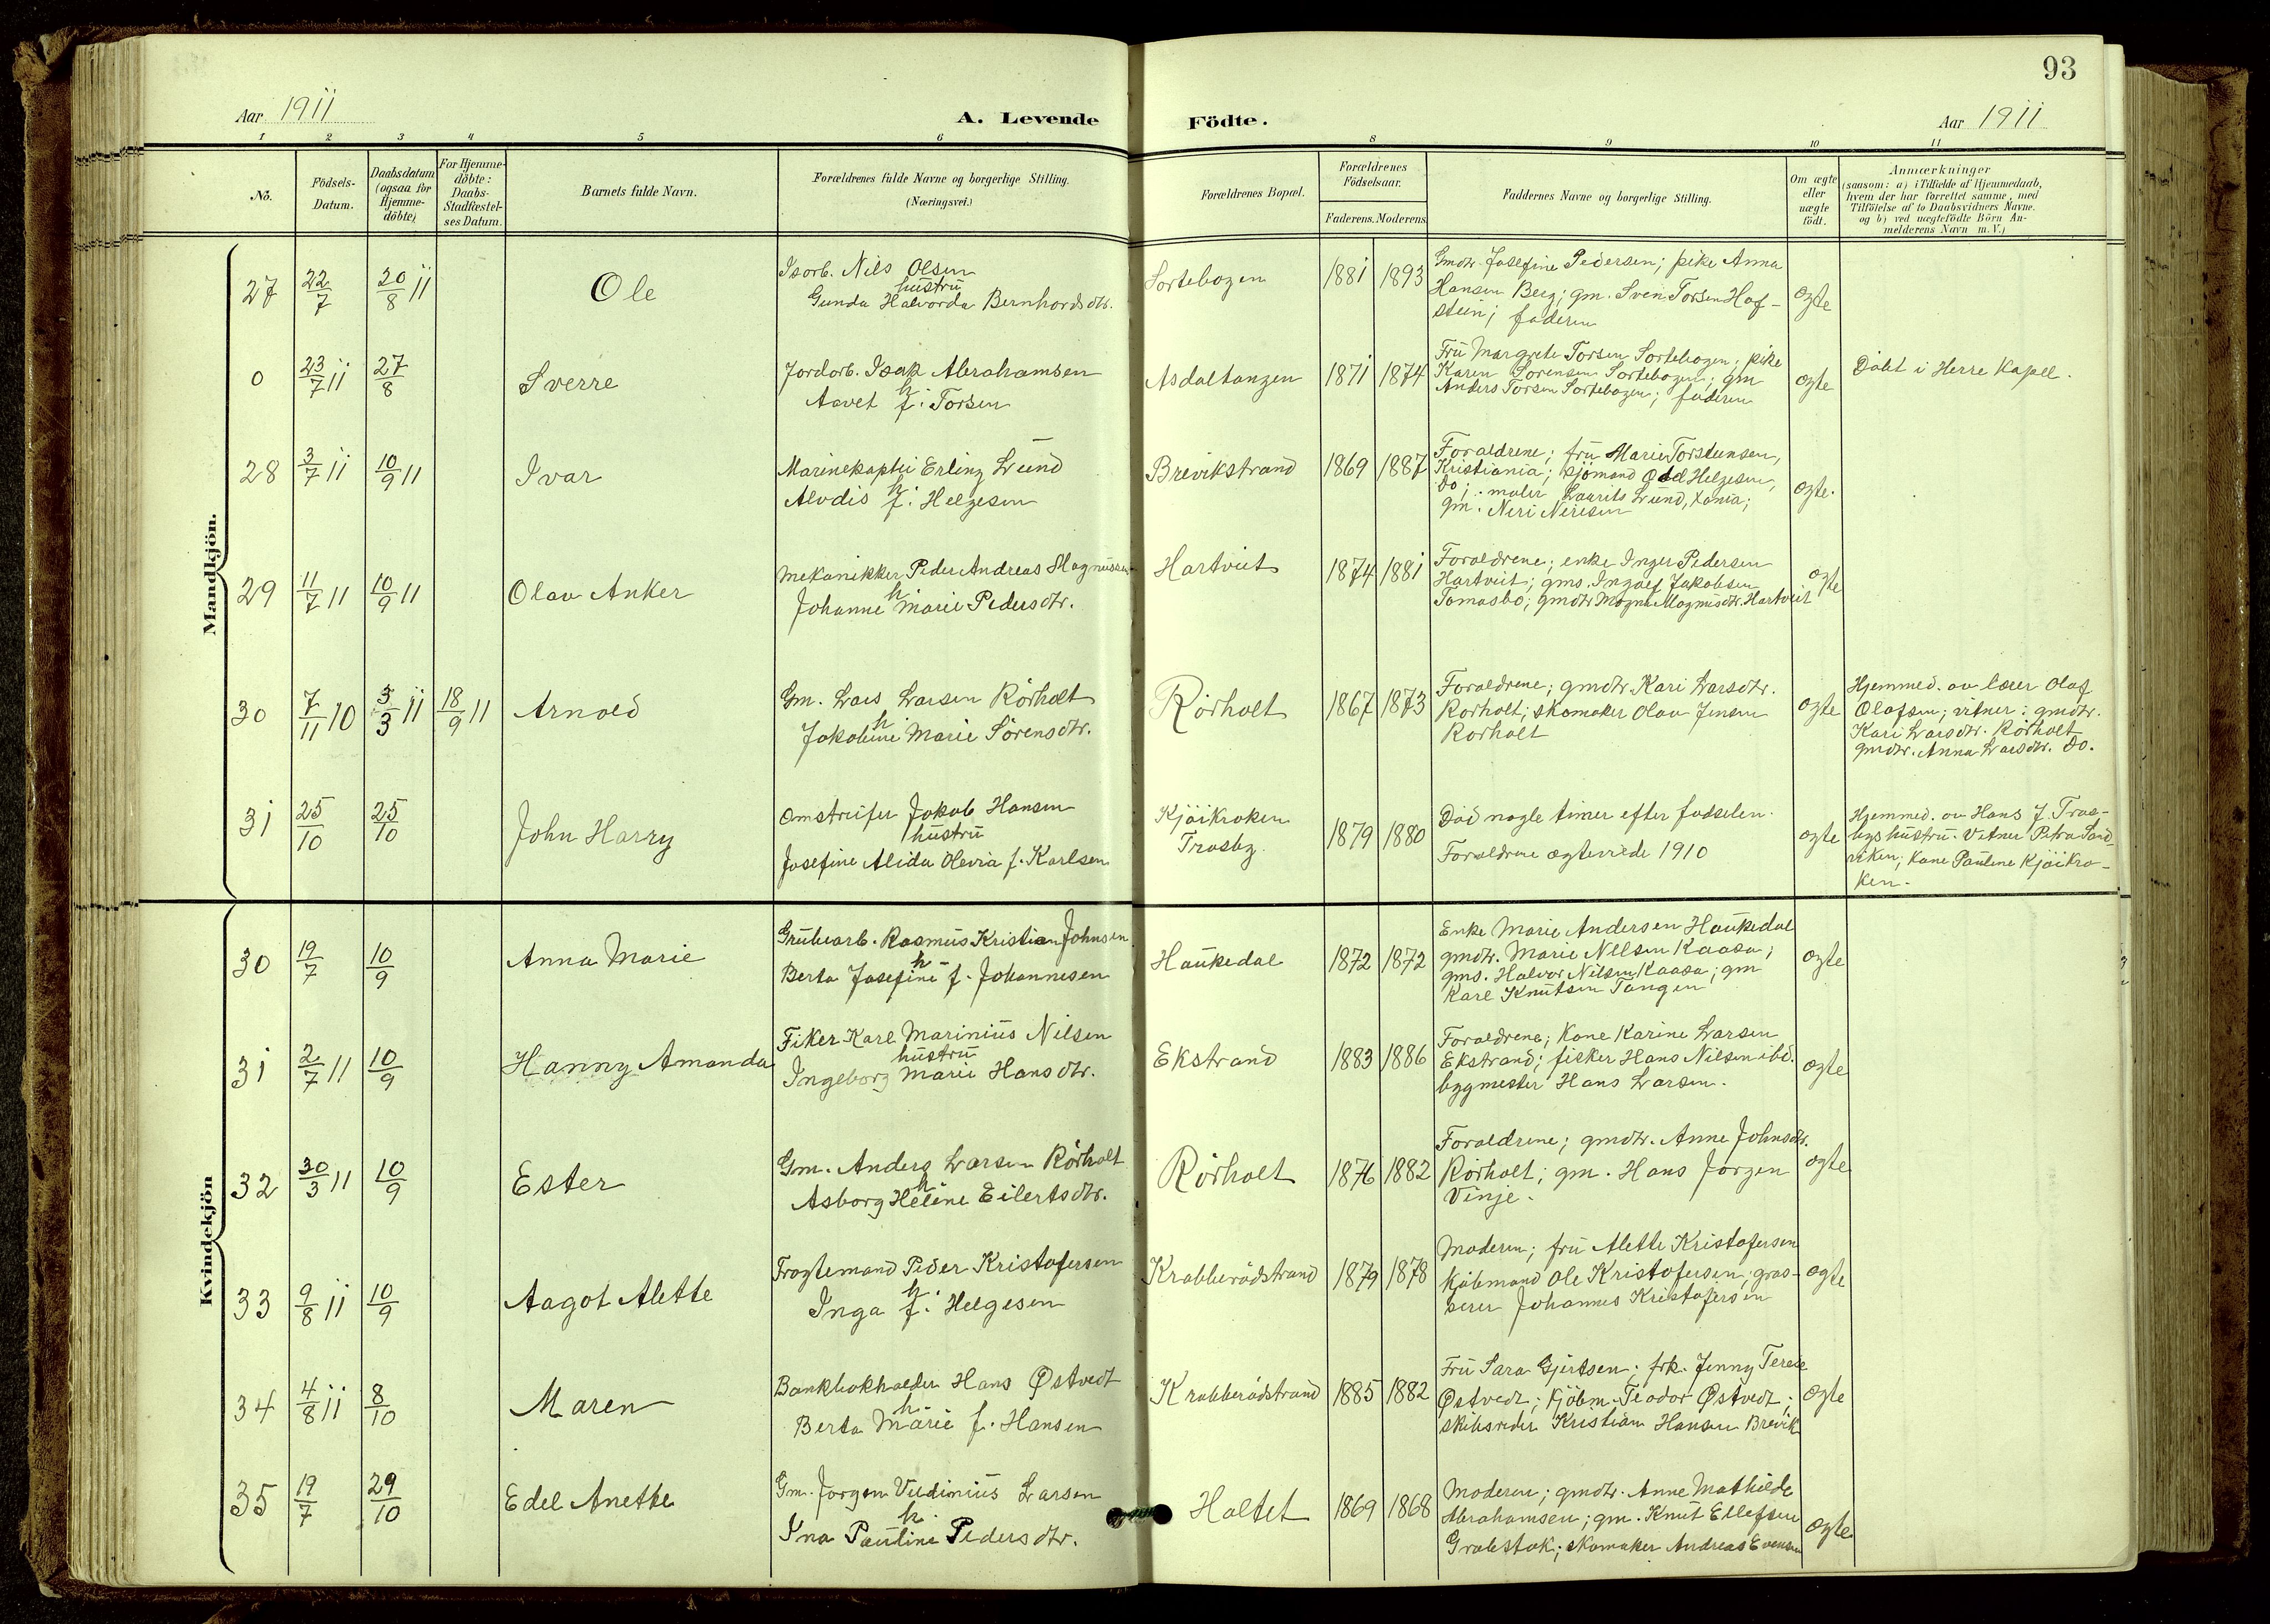 93
Aar 1911
A. Levende Födte.
Aar 1911
1 2 3 4 5 6 8 9 10 11
No.
Födsels-
Datum.
Daabsdatum
(ogsaa for
Hjemme-
döbte)
For Hjemme-
döbte:
Daabs-
Stadfestel-
ses Datum.
Barnets fulde Navn.
Forældrenes fulde Navne og borgerlige Stilling.
(Næringsvei.)
Forældrenes Bopæl.
Forældrenes
Födselsaar.
Faderens. Moderens
Faddernes Navne og borgerlige Stilling.
Om ægte
eller
uægte
födt.
Anmærkninger
(saasom: a) i Tilfælde af Hjemmedaab,
hvem der har forrettet samme, med
Tilföielse af to Daabsvidners Navne.
og b) ved uægtefödte Börn An-
melderens Navn m. V.)
Mandkjön.
27 22/7 20/8 11 Ole
Isarb. Nils Olsen
hustru
Gunda Halvorda Bernhardsdtr.
Sortebogen 1881 1893
Gmdtr Josefine Pedersen; pike Anna
Hansen Berg; gm. Sven Torsen Haf-
stein; faderen
ægte
0 23/7 11 27/8 Sverre
Jordarb. Isak Abrahamsen
h
Aavet f. Torsen
Asdaltangen 1871 1874
Fru Margrete Torsen Sortebogen; pike
Karen Sörensen Sortebogen; gm
Anders Torsen Sortebogen; faderen
ægte
Döbt i Herre Kapel.
28 3/7 11 10/9 11 Ivar
Marinekaptei Erling Lund
h
Alvdis f. Helgesen
Brevikstrand 1869 1887
Foraldrene; fru Marie Torstensen,
Kristiania; sjömand Odd Helgesen,
do; maler Laurits Lund, Xania;
gm. Neri Nerisen
ægte.
29 11/7 11 10/9 11 Olav Anker
Mekanikker Peder Andreas Magnussen
h
Johanne Marie Pedersdtr.
Hartveit 1874 1881
Foraldrene; enke Inger Pedersen
Hartveit; gms. Ingolf Jakobsen
Tomasbo; gmdtr Magna Magnusdtr. Hartveit
ægte
30 7/11 10 5/3 11 18/9 11 Arnold
Gm. Lars Larsen Rörholt
h
Jakobine Marie Sörensdtr.
Rörholt 1867 1873
Foraldrene; gmdtr. Kari Larsdtr.
Rorholt; skomaker Olav Jensen
Rorholt
ægte
Hjemmed. av lærer Olaf
Olafsen; vitner: gmdtr.
Kari Larsdtr. Rörholt
gmdtr. Anna Larsdtr. do.
31 25/10 25/10 John Harry
Omstreifer Jakob Hansen
hustru
Josefine Alida Olevia f. Karlsen
Kjöikroken
Trosby.
1879 1880
Död nogle timer efter fodselen.
Foraldrene ægteviede 1910
ægte
Hjemmed. av Hans J. Tros-
bys hustru. Vitner Petra Sand
viken; kone Pauline Kjöikro-
ken.
Kvindekjön
30 19/7 10/9 Anna Marie
Grubearb. Rasmus Kristian Johnsen
h
Berta Josefine f. Johannesen
Haukedal 1872 1872
Enke Marie Andersen Haukedal
gmdtr. Marie Nilsen Kaasa;
gms. Halvor Nilsen Kaasa; gm
Karl Knutsen Tangen
ægte
31 2/7 11 10/9 Hanny Amanda
Fiker Karl Marinius Nilsen
hustru
Ingeborg Marie Hansdtr.
Ekstrand 1883 1886
Foraldrene; Kone Karine Larsen
Ekstrand; fisker Hans Nilsen ibd.
bygmester Hans Larsen.
ægte
32 30/3 11 10/9 Ester
Gm. Anders Larsen Rörholt
h
Asborg Heline Eilertsdtr.
Rörholt 1876 1882
Foraldrene; gmdtr. Anne Johnsdtr.
Rörholt; gm. Hans Jörgen
Vinje.
ægte
33 9/8 11 10/9 Aagot Alette
Fragtemand Peder Kristofersen
h
Inga f. Helgesen
Krabberödstrand 1879 1878
Moderen; fru Alette Kristofersen
Kjöbmand Ole Kristofersen, gros-
serer Johannes Kristofersen
ægte
34 4/8 11 8/10 Maren
Bankbokholder Hans Østvedt
h
Berta Marie f. Hansen
Krabberödstrand 1885 1882
Fru Sara Gjertsen; frk. Jenny Terese
Østvedt; Kjöbm. Teodor Østvedt;
skibsreder Kristian Hansen Brevik
ægte
35 19/7 29/10 Edel Anette
Gm. Jorgen Larsen
h
Ina Pauline Pedersdtr.
Holtet 1869 1868
Moderen; gmdtr. Anne Mathilde
Abrahamsen; gm. Knut Ellefsen
Grobstok; skomaker Andreas Evensen
ægte